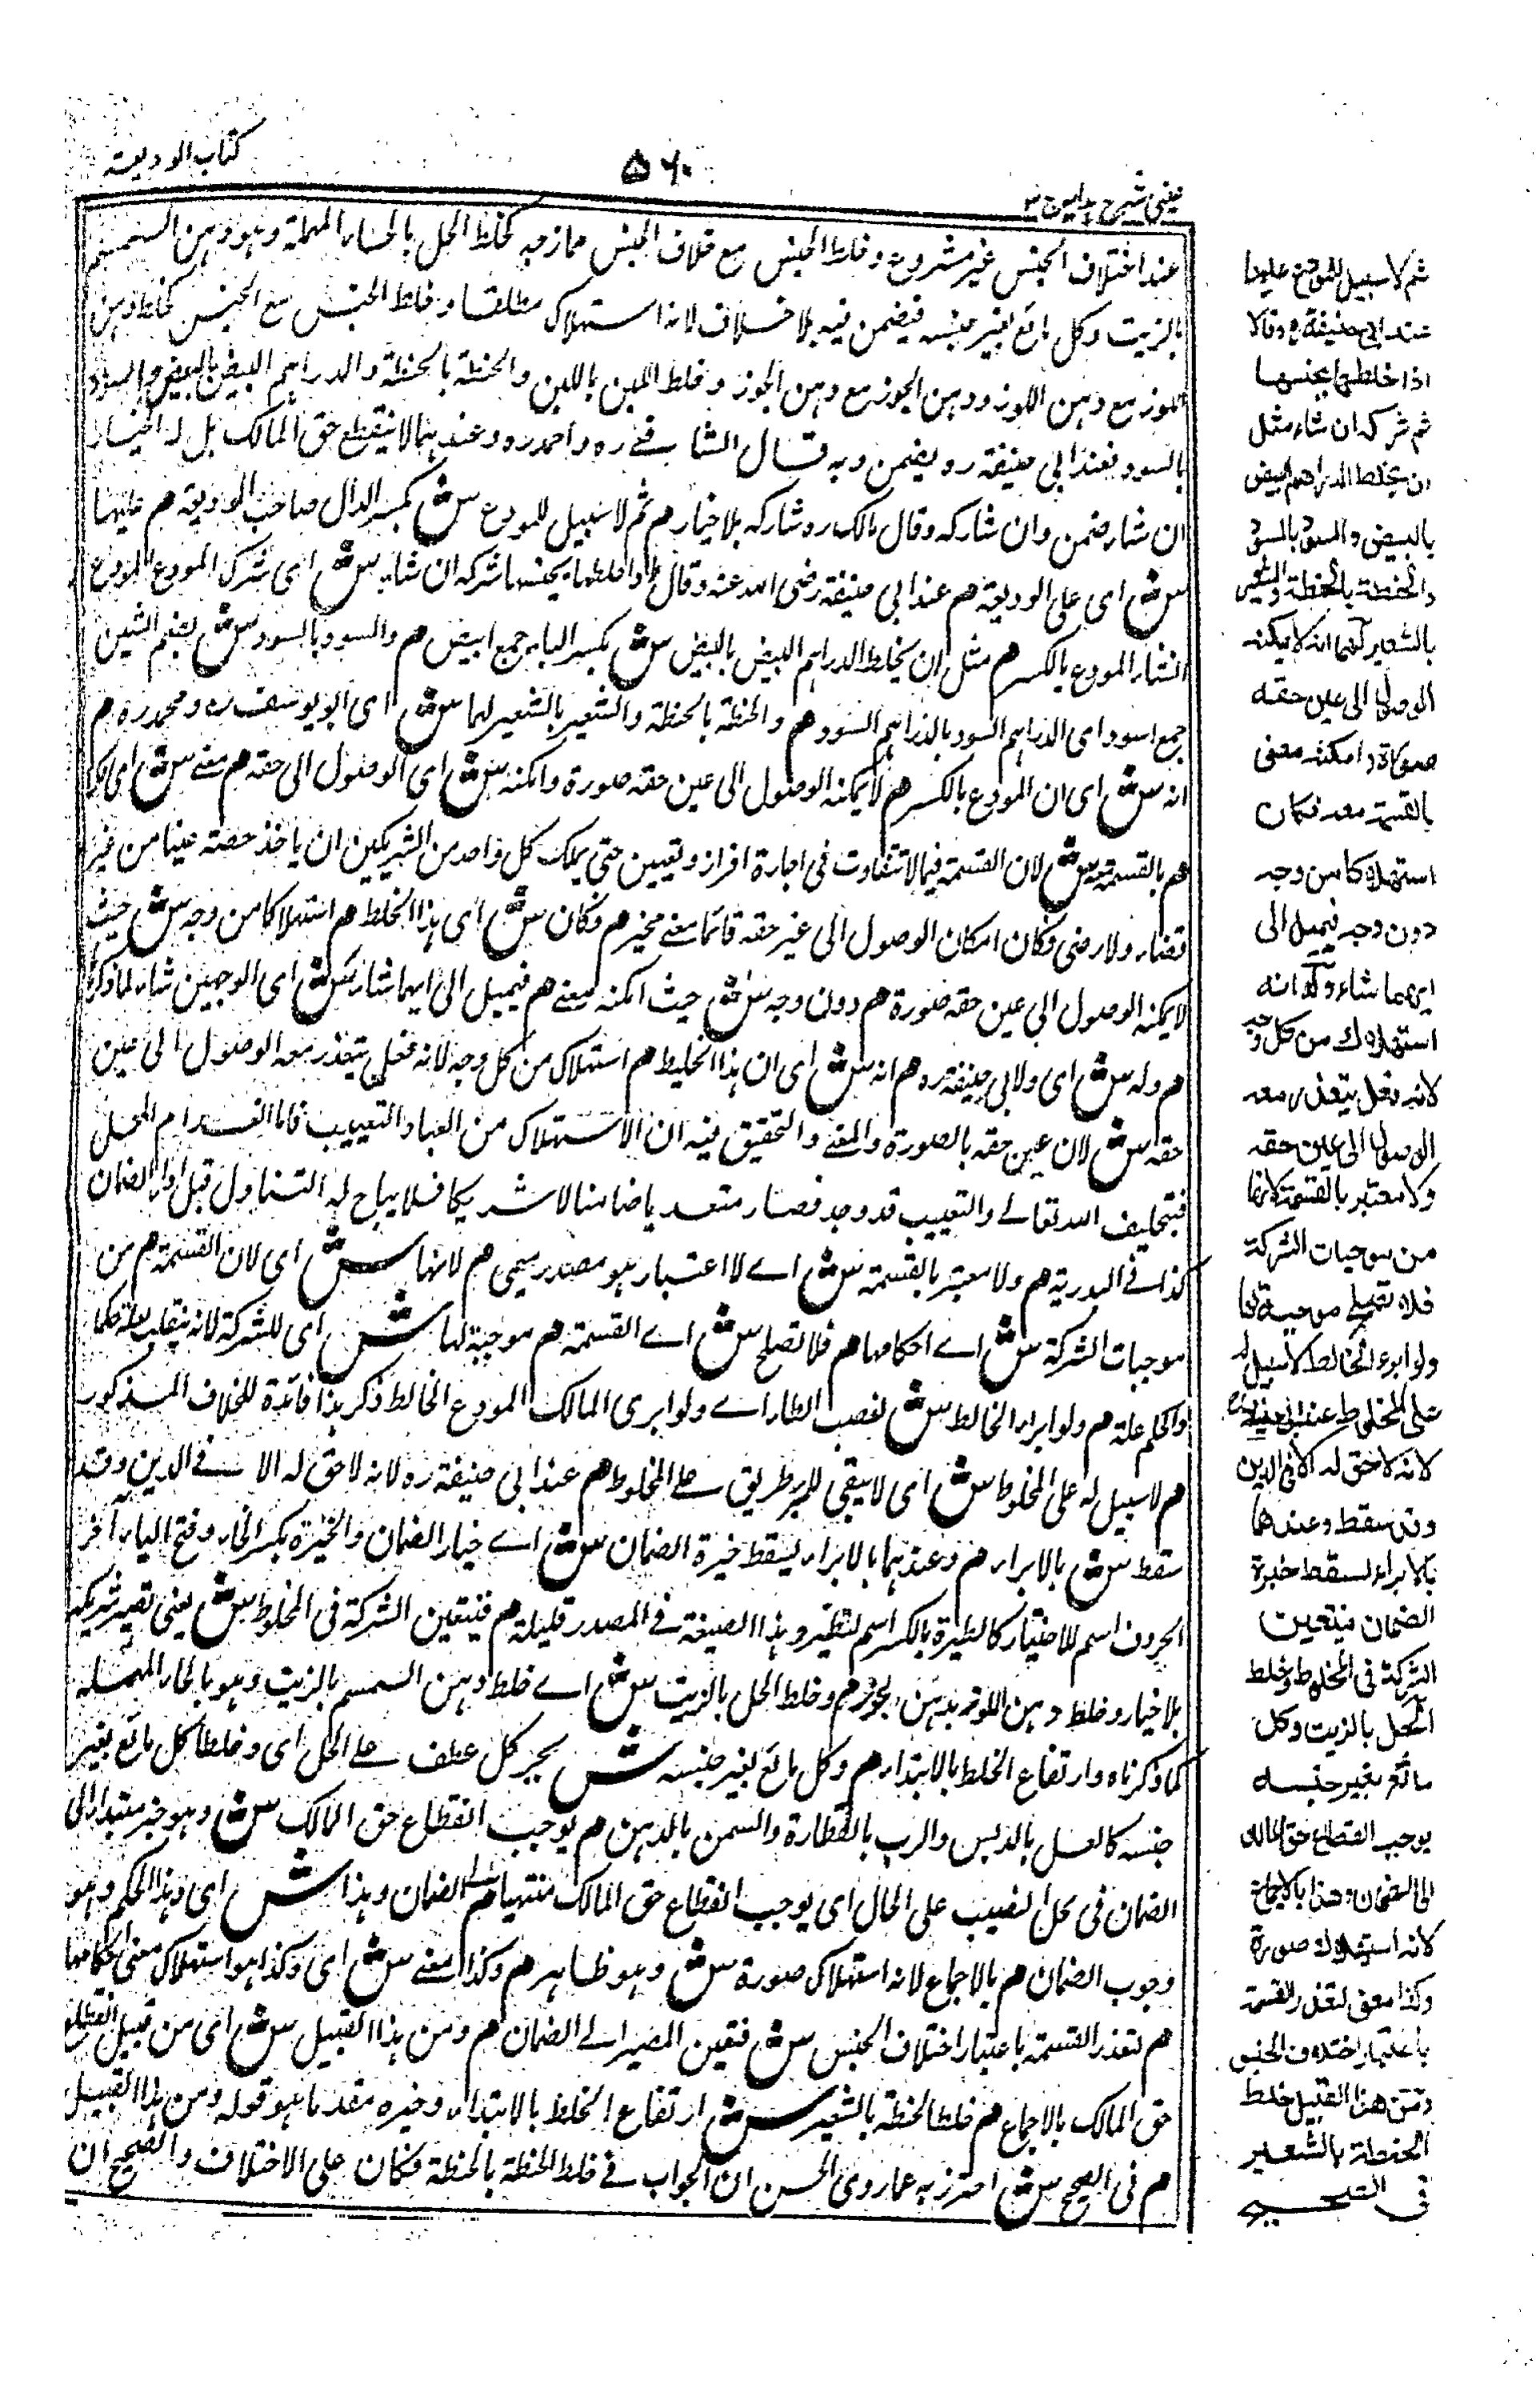 كتاب الوديعة
۵۶۰
عينى شرح هدايه ج ٣
عند اختلاف الجنس غير مشروع وخلط الجنس مع خلاف الجنس ممازجة كخلط الحل بالحاء المهملة وهو دهن السمسم
بالزيت وكل مائع بغير جنسه فيضمن فيه بلا خلاف لانه استهلاك مطلقا وخلط الجنس مع الجنس كخلط دهن
اللوز مع دهن اللوز ودهن الجوز مع دهن الجوز وخلط اللبن باللبن والحنطة بالحنطة والدراهم البيض بالبيض والسود
بالسود فعند ابي حنيفة ره يضمن وبه قال الشافعي ره واحمد ره وعندهما لا ينقطع حق المالك بل له الخيار
ان شاء ضمن وان شاركه وقال مالك ره شاركه بلا خيار هم ثم لا سبيل للمودع ش بكسر الدال صاحب الوديعة هم عليها
ش اى على الوديعة هم عند ابي حنيفة رضى الله عنه وقالا اذا خلطها بجنسها شركه ان شاء ش اى شرك المودع المودع
ان شاء المودع بالكسر هم مثل ان يخلط الدراهم البيض بالبيض ش بكسر الباء جمع ابيض هم والسود بالسود ش بضم السين
جمع اسود اى الدراهم السود بالدراهم السود هم والحنطة بالحنطة والشعير بالشعير لهما ش اى ابو يوسف ره ومحمد ره هم
انه ش اى ان المودع بالكسر هم لا يمكنه الوصول الى عين حقه صورة وامكنه ش اى الوصول الى حقه هم معنى ش اى
هم بالقسمة معه ش لان القسمة فيما لا تتفاوت فى اجارة افراز وتعيين حتى يملك كل واحد من الشريكين ان ياخذ حصته عينا من غير
قضاء ولا رضى فكان امكان الوصول الى غير حقه قائما معنى مخير هم فكان ش اى هذا الخلط هم استهلاكا من وجه ش حيث
لا يمكنه الوصول الى عين حقه صورة هم دون وجه ش حيث امكنه معنى هم فيميل الى ايهما شاء ش اى الوجهين شاء لما ذكرنا
هم وله ش اى ولابي حنيفة ره هم انه ش اى ان هذا الخليط هم استهلاك من كل وجه لانه فعل يتعذر معه الوصول الى عين
حقه ش لان عين حقه بالصورة والمعنى والتحقيق فيه ان الاستهلاك من العباد التعييب فاما انعدام المحل
فبتخليف الله تعالى والتعييب قد وجد فصار متعديا ضامنا لا شريكا فلا يباح له التناول قبل اداء الضمان
كذا فى البدرية هم ولا معتبر بالقسمة ش اى لا اعتبار هو مصدر ميمى هم لانها ش اى لان القسمة هم من
موجبات الشركة ش اى احكامها هم فلا تصلح ش اى القسمة هم موجبة لها ش اى للشركة لانه ينقلب العلة حكما
والحكم علة هم ولو ابراء الخالط ش بنصب الطاء اى ولو ابرى المالك المودع الخالط ذكر هذا فائدة للخلاف المذكور
هم لا سبيل له على المخلوط ش اى لا يبقى للمبر طريق على المخلوط هم عند ابي حنيفة ره لانه لا حق له الا فى الدين وقد
سقط ش بالابراء هم وعندهما بالابراء يسقط خيرة الضمان ش اى خيار الضمان والخيرة بكسر الخاء وفتح الياء آخر
الحروف اسم للاختيار كالطيرة بالكسر اسم لتطير وهذا الصيغة فى المصدر قليلة هم فيتعين الشركة فى المخلوط ش يعنى تصير شريكه
بلا خيار وخلط دهن اللوز بدهن الجوز هم وخلط الحل بالزيت ش اى خلط دهن السمسم بالزيت وهو بالحاء المهملة
كما ذكرناه وارتفاع الخلط بالابتداء هم وكل مائع بغير جنسه ش بجر كل عطف على الحل اى وخلط كل مائع بغير
جنسه كالعسل بالدبس والرب بالقطارة والسمن بالدهن هم يوجب انقطاع حق المالك ش وهو خبر مبتدا الى
الضمان فى محل النصب على الحال اى يوجب انقطاع حق المالك منتهيا هم الى الضمان وهذا ش اى وهذا الحكم وهو
وجوب الضمان هم بالاجماع لانه استهلاك صورة ش وهو ظاهر هم وكذا معنى ش اى وكذا هو استهلاك معنى احكامها
هم لتعذر القسمة باعتبار اختلاف الجنس ش فتعين المصير الى الضمان هم ومن هذا القبيل ش اى من قبيل انقطاع
حق المالك بالاجماع هم خلط الحنطة بالشعير ش ارتفاع الخلط بالابتداء وخبره مقدما هو قوله ومن هذا القبيل
هم فى الصحيح ش احترز به عما روى الحسن ان الجواب فى خلط الحنطة بالحنطة فكان على الاختلاف والصحيح ان
ثم لا سبيل للمودع عليها
عند ابى حنيفة رح وقالا
اذا خلطها بجنسها
ثم شركه ان شاء مثل
ان يخلط الدراهم البيض
بالبيض والسود بالسود
والحنطة بالحنطة والشعير
بالشعير لهما انه لا يمكنه
الوصول الى عين حقه
صورة وامكنه معنى
بالقسمة معه فكان
استهلاكا من وجه
دون وجه فيميل الى
ايهما شاء وله انه
استهلاك من كل وجه
لانه فعل يتعذر معه
الوصول الى عين حقه
ولا معتبر بالقسمة لانها
من موجبات الشركة
فلا تصلح موجبة لها
ولو ابرء الخالط لا سبيل له
على المخلوط عند ابى حنيفة رح
لانه لا حق له الا فى الدين
وقد سقط وعندهما
بالابراء يسقط خيرة
الضمان فيتعين
الشركة فى المخلوط وخلط
الحل بالزيت وكل
مائع بغير جنسه
يوجب انقطاع حق المالك
الى الضمان وهذا بالاجماع
لانه استهلاك صورة
وكذا معنى لتعذر القسمة
باعتبار اختلاف الجنس
ومن هذا القبيل خلط
الحنطة بالشعير
فى الصحيح